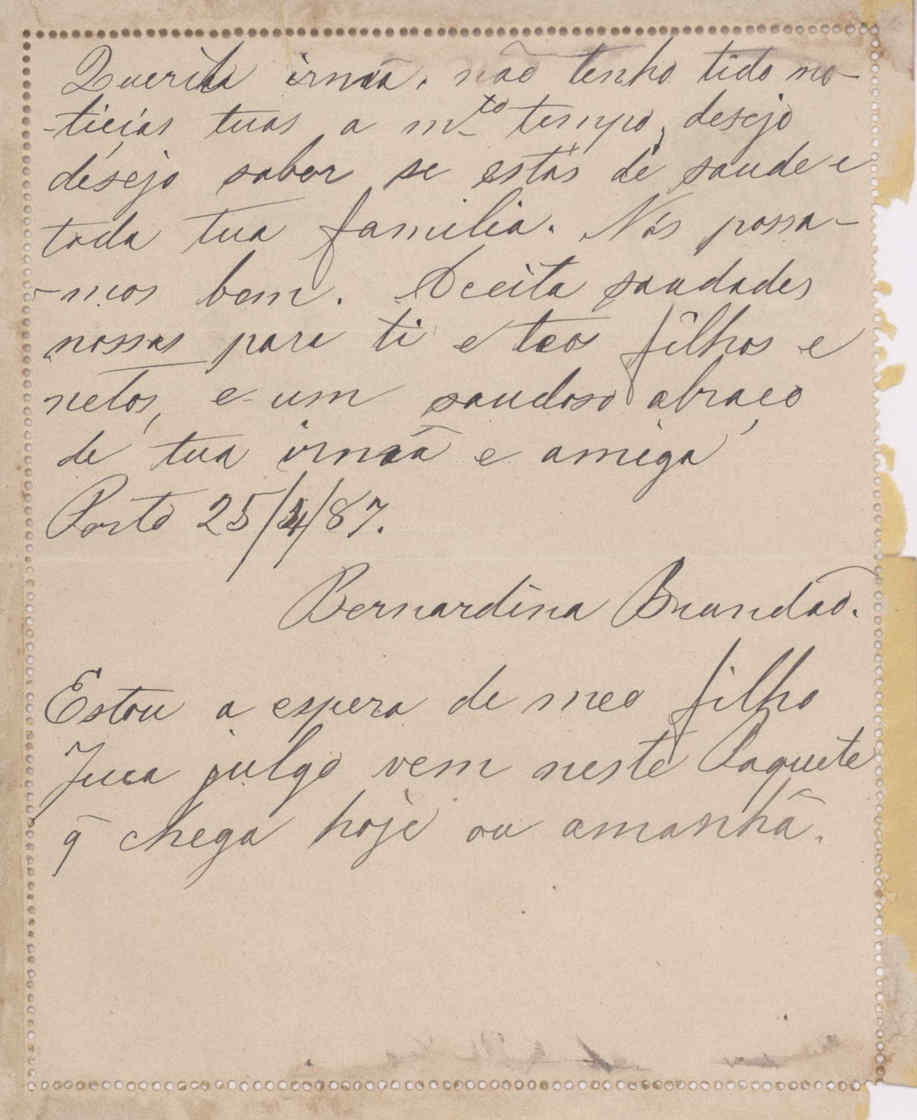 Querida irmã, não tenho tido no-
-ticias tuas a m.to tempo, desejo
desejo saber se estás de saude e
toda tua familia. Nós passa-
-mos bem. Aceita saudades
nossas para ti e teos filhos e
netos, e um saudoso abraço
de tua irmã e amiga
Porto 25/4/87.
Bernardina Brandão.
Estou a espera de meo filho
Juca julgo vem neste Paquete
q̃ chega hoje ou amanhã.